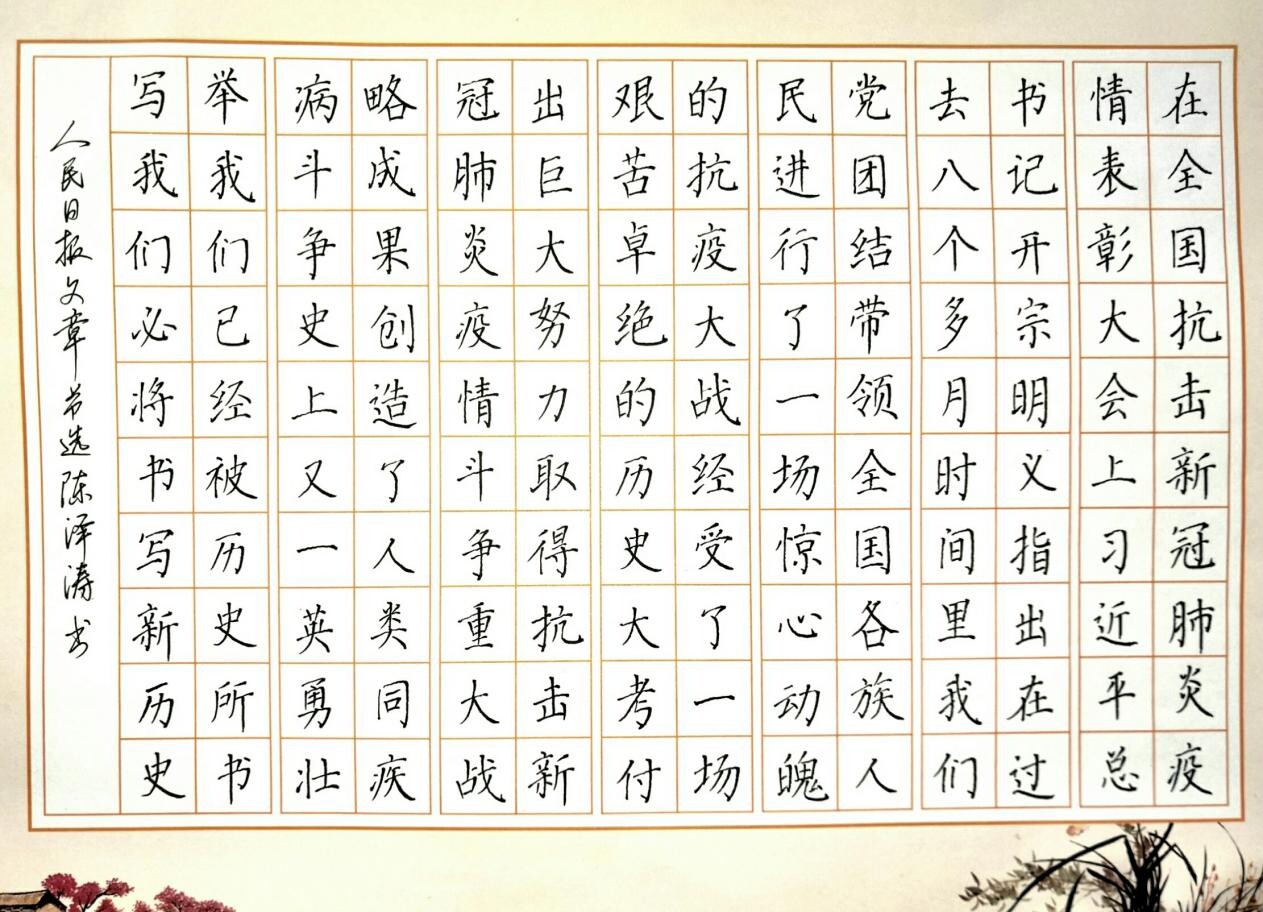 在全国抗击新冠肺炎疫
情表彰大会上习近平总
书记开宗明义指出在过
去八个多月时间里我们
党团结带领全国各族人
民进行了一场惊心动魄
的抗疫大战经受了一场
艰苦卓绝的历史大考付
出巨大努力取得抗击新
冠肺炎疫情斗争重大战
略成果创造了人类同疾
病斗争史上又一英勇壮
举我们已经被历史所书
写我们必将书写新历史
人民日报文章节选陈泽涛书